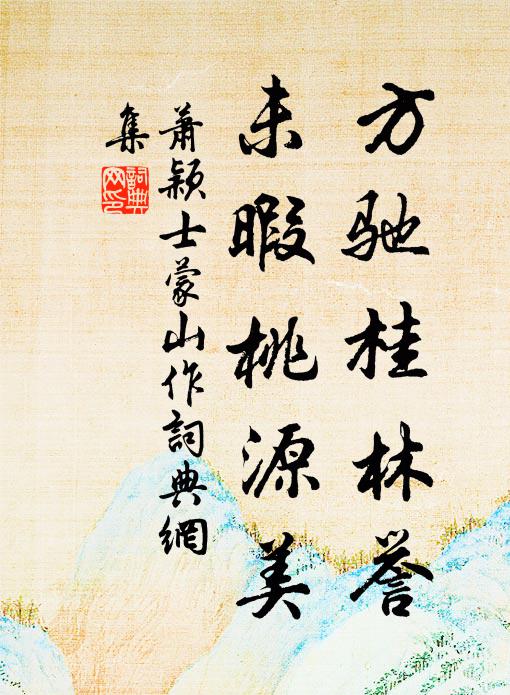 方驰桂林誉
未暇桃源美
萧颖士蒙山作词典網
集
詞典網印